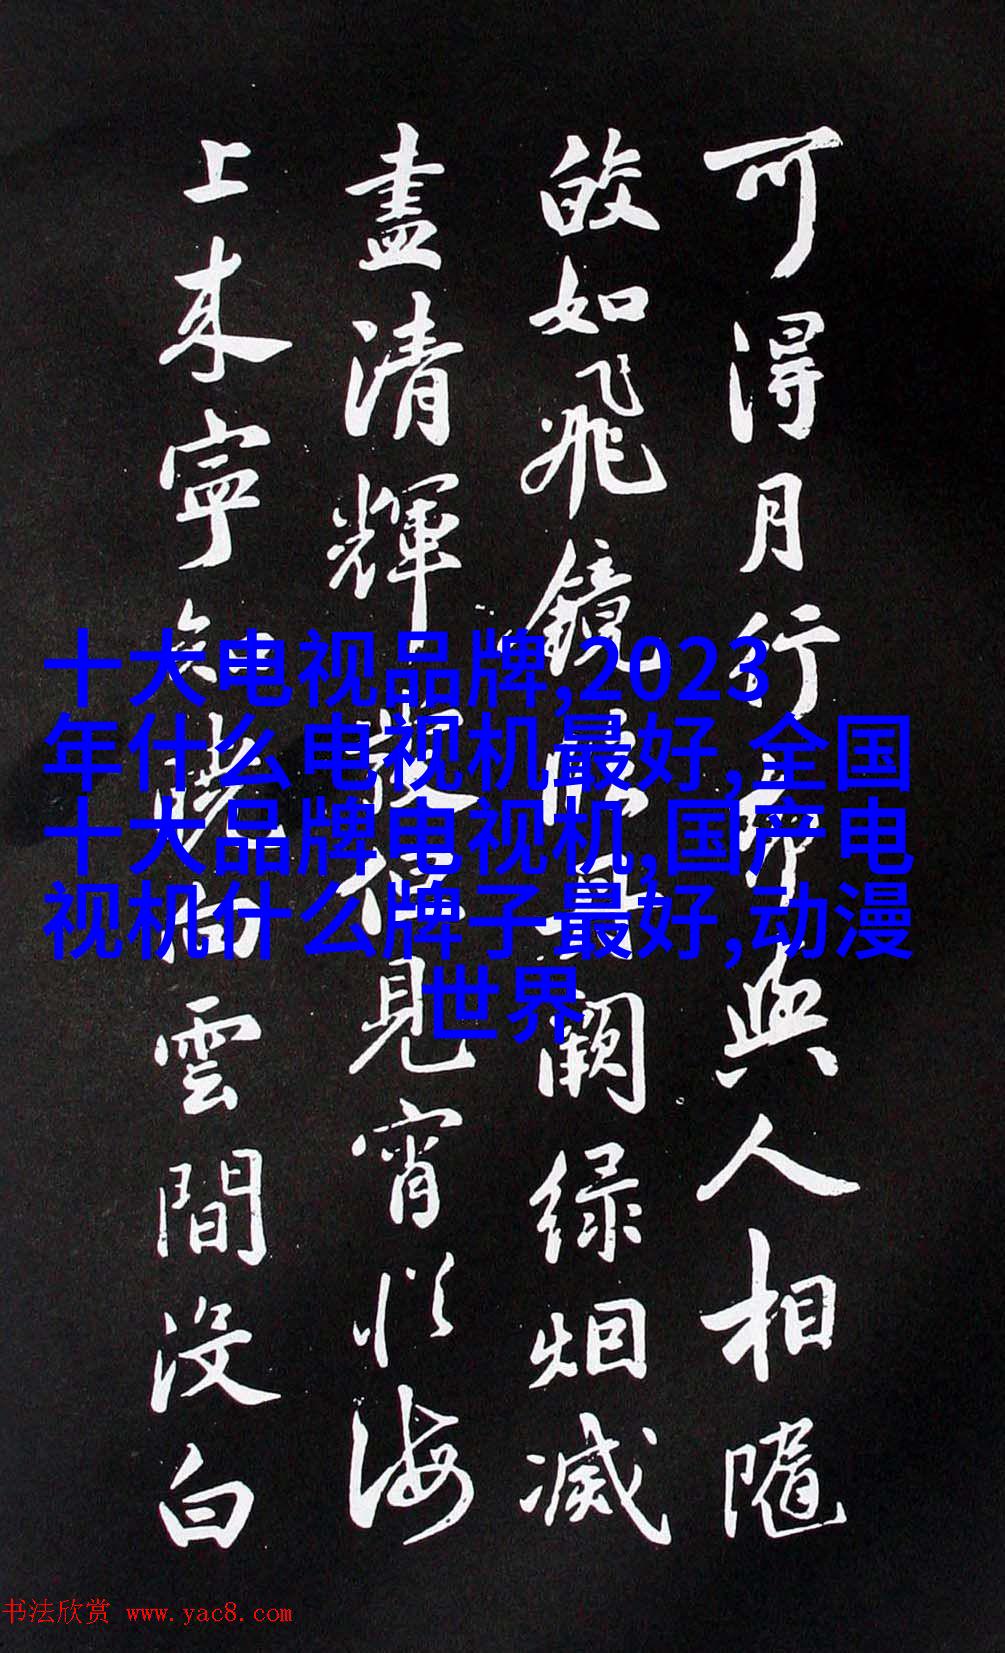 可得月行却與人相隨
皎如飛鏡臨丹闕緑烟滅
盡清輝發但見宵從海
上来寧知曉向雲間没白
十大电视品牌,2023
年什么电视机最好,全国
十大品牌电视机,国产电
视机什么牌子最好,动漫
世界
书法欣赏 www.yac8.com